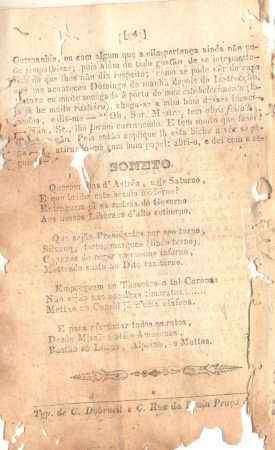 [ 4 ]
Companhia, eu com algum que a ella pertença ainda não pu-
sympathisar; pois nicta de tudo gostão de se intrometterem
do que lhes não diz respeito; como se pode vêr do caso
me aconteceo Domingo de manhã depois da Instrucção.
Estava eu muito socegado á porta do meu estabelecimento (lo-
ja he muito rasteiro), chega-se a mim hum desses incom-
e diz-me Oh, Snr. Mestre, tem obra feita
Não, Sr., lhe tornei carrancudo. E tem muito que fazer?
não. Pois então suplique lá esta bicha a vêr se
atirando-me com hum papel: abri-o, e dei com o se-
SONETO.
Querem d'Astréa, e de Saturno,
E que brilhe este seculo moderno?
Entreguem já as redeas do Governo
Aos nossos Liberaes d'alto cothurno.
Que sejão Presidentes por seu turno,
Silvano, torto, marquez (lindo terno),
Capazes de reger no mesmo inferno,
Mettendo susto ao Dite taciturno.
Empreguem no Thesouro o tal Carona:
Não sejão nas escolhas timoratos........
Metta-se o Consul já n'uma atafona.
E para afugentar todos os ratos,
Desde Missões até o Amasonas,
Bastão só Limas, Alpoins, e Mattos.
Typ. de C. Dubreuil e C. Rua da Praça